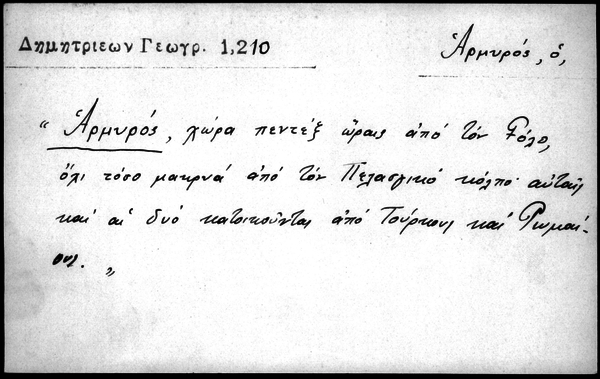 Δημητριεων Γεωγρ. 1,210
Ἁρμυρός, ὁ,
“ Ἁρμυρός, χώρα πεντέξ ὥραις ἀπό τόν Γόλο,
ὄχι τόσο μακρυά ἀπό τόν Πελασγικό κόλπο· αὐταῖς
καί αἱ δυό κατοικοῦνται ἀπό Τούρκους καί Ρωμαί-
ους. „